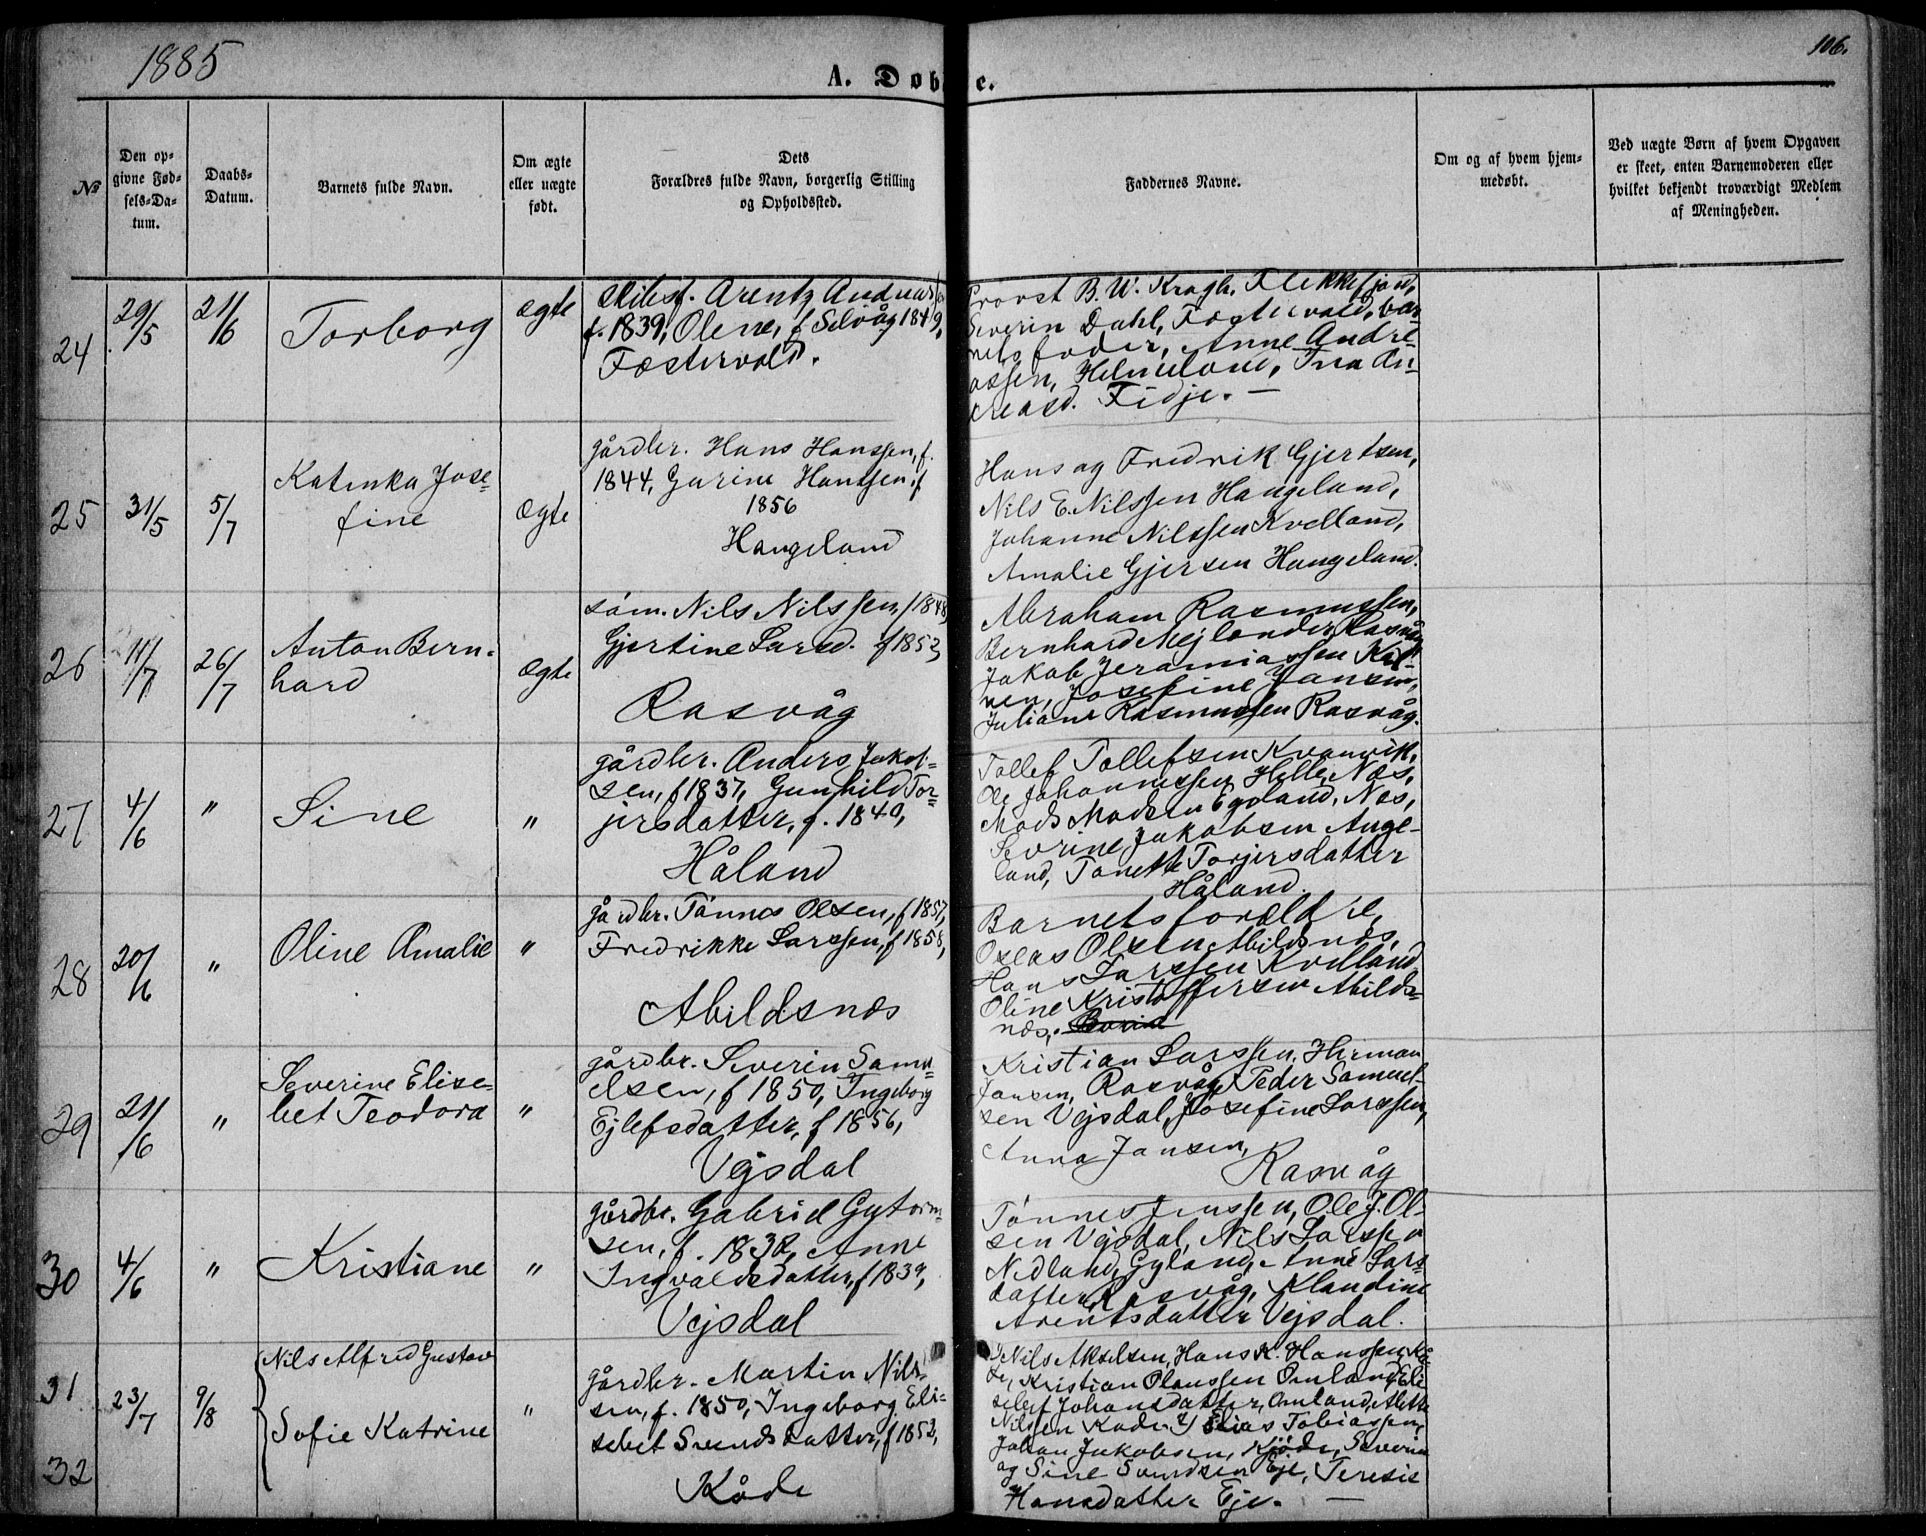 1885
106.
A. Døb e.
No
Den op-
givne Fød-
sels-Da-
tum.
Daabs-
Datum.
Barnets fulde Navn.
Om ægte
eller uægte
født.
Dets
Forældres fulde Navn, borgerlig Stilling
og Opholdssted.
Faddernes Navne.
Om og af hvem hjem-
medøbt.
Ved uægte Børn af hvem Opgaven
er skeet, enten Barnemoderen eller
hvilket bekjendt troværdigt Medlem
af Menigheden.
24
29/5
21/6
Torborg
ægte
skibsf. Arentz
f. 1839, Olene, f Selvåg 1849,
Fæstervold.
Provst B. W. Kragh, Flekkefjord,
Severin Dahl, Fæstervold, bar-
nets fader, Anne Andre-
assen, Helneland, Ina An-
dreasd. Fidje. —
25
31/5
5/7
Katinka Jose-
fine
Ægte
gårdbr. Hans Hanssen, f.
1844, Gurine Hanssen, f
1856
Haugeland
Hans og Fredrik Gjertsen,
Nils E. Nilssen Haugeland,
Johanne Nilssen Kvelland,
Amalie Gjersen Haugeland.
26
11/7
26/7
Anton Bern-
hard
Ægte
søm. Nils Nilssen, f 1848,
Gjertine Larsd. f 1852,
Rasvåg
Abraham Rasmussen,
Bernhard Mejlænder, Rasvåg
Jakob Jeramiassen
Josefine Jansen,
Juliane Rasmussen Rasvåg.
27
4/6
"
Sine
"
gårdbr. Anders Jakob-
sen, f 1837, Gunhild Tor-
jersdatter, f. 1840,
Håland
Tollef Tollefsen Kvanvik,
Ole Johannessen Helle, Næs,
Mads Madsen Egeland, Næs,
Severine Jakobsen Ange-
land, Tonette Torjersdatter
Håland.
28
20/6
"
Oline Amalie
"
gårdbr. Tønnes Olsen, f 1857,
Fredrikke Larssen, f 1858,
Abildsnæs
Barnets forældre,
Oseas Olsen Abildsnæs,
Hans Larssen Kvelland,
Oline Kristoffersen Abilds-
næs,
29
21/6
"
Severine Elise-
bet Teodora
"
gårdbr. Severin Samu-
elsen, f 1850, Ingeborg
Ejlefsdatter, f 1856,
Vejsdal
Kristian Larssen, Herman
Jansen, Rasvåg, Peder Samuel-
sen Vejsdal, Josefine Larssen,
Anna Jansen,
Rasvåg
30
4/6
"
Kristiane
"
gårdbr. Gabriel Gutorm-
sen, f. 1832, Anne
Ingvaldsdatter, f 1839,
Vejsdal
Tønnes Jenssen, Ole J. Ol-
sen Vejsdal, Nils Larssen
Nedland, Gyland, Anne Lars-
datter Rasvåg, Klandine
Arentsdatter Vejsdal.
31
23/7
9/8
Nils Alfred Gustav
Sofie Katrine
"
gårdbr. Martin Nils-
sen, f. 1850, Ingeborg Eli-
sebet Svendsdatter, f 1852,
Kåde
32
Nils Akselsen, Hans K. Hanssen, Kå-
de, Kristian Olaussen Omland, Eli-
sebet Johansdatter, Omland, Alette
Nilssen Kåde. 2) Elias Tobiassen,
Johan Jakobsen, Severin
og Sine Svendsen Eje, Teresie
Hansdatter Eje. —